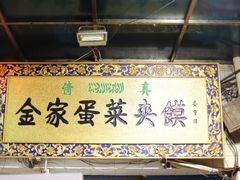 清 真
金家蛋菜夹馍